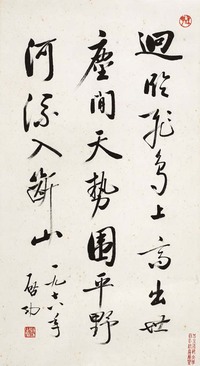 迥臨飛鳥上高出世
塵間天勢圍平野
河流入斷山 一九七六年
啟功